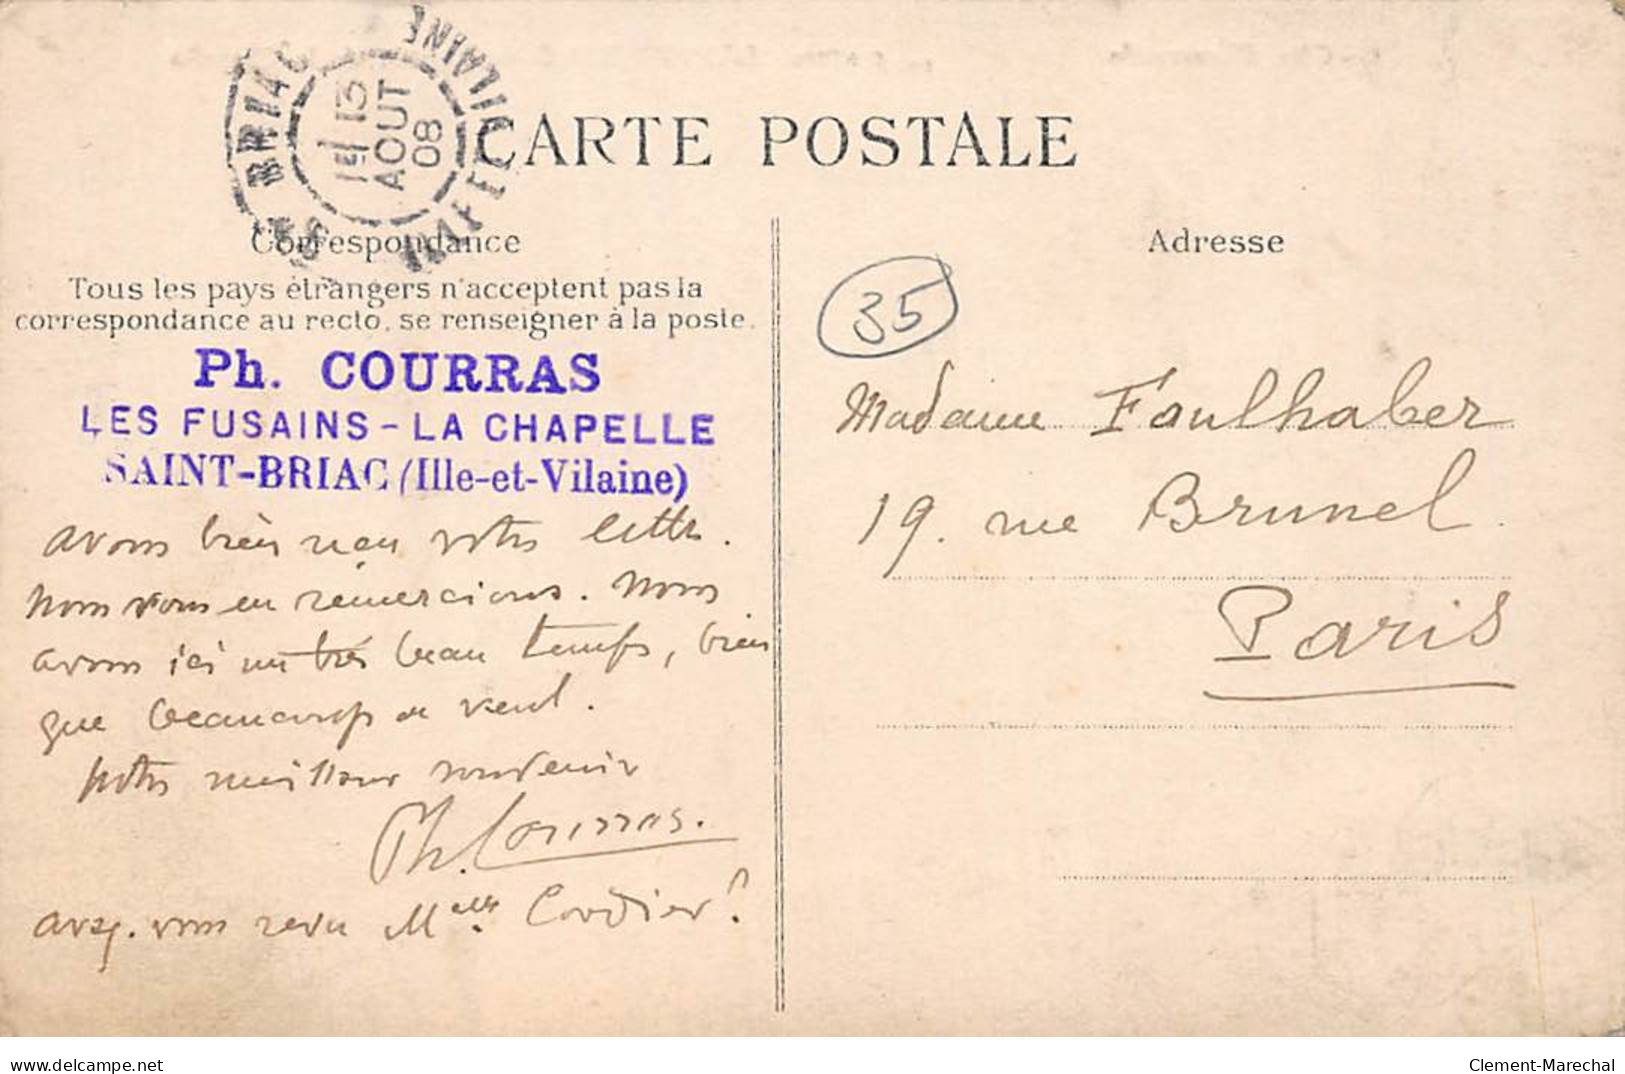 St BRIAC
ILLE-ET-VILAINE
13
AOUT
08
CARTE POSTALE
Correspondance
Tous les pays étrangers n'acceptent pas la
correspondance au recto, se renseigner à la poste.
Ph. COURRAS
LES FUSAINS - LA CHAPELLE
SAINT-BRIAC (Ille-et-Vilaine)
avons bien reçu votre lettre.
Nous vous en remercions. Nous
avons ici un très beau temps, bien
que beaucoup de vent.
Notre meilleur souvenir
Ph. Courras.
avez-vous revu Melle Cordier?
Adresse
35
Madame Faulhaber
19. rue Brunel.
Paris
delcampe.net
Clement-Marechal